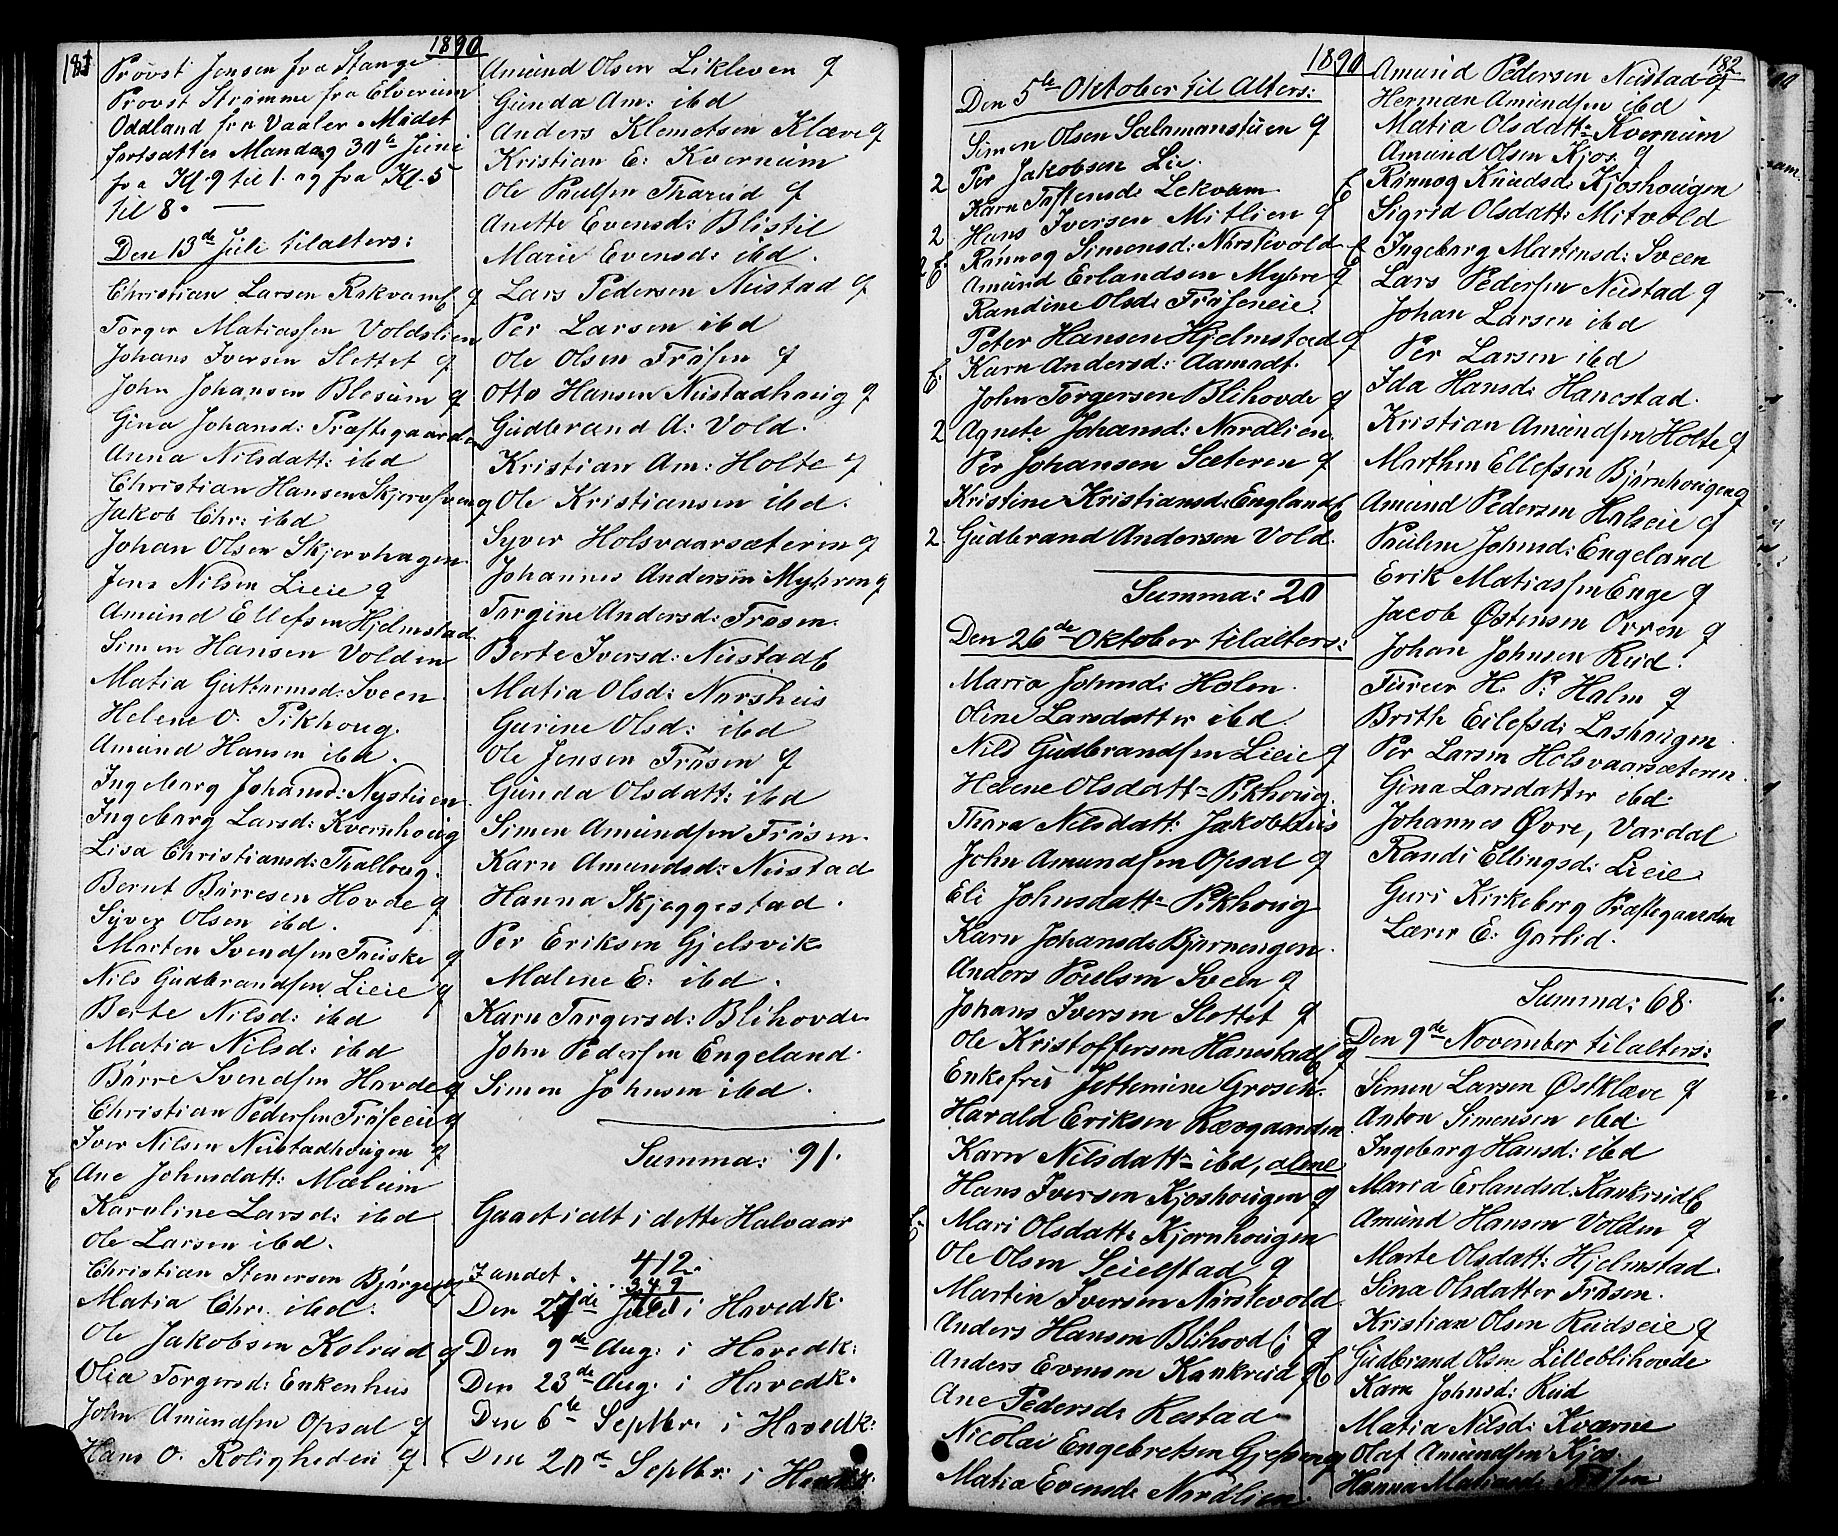 181
1890
Provst Jensen fra Stange
Provst Strømme fra Elverum
Oddland fra Vaaler. Mødet
fortsattes Mandag 30te Juni
fra Kl. 9 til 1. og fra Kl. 5
til 8.
Den 13de Juli tilalters:
Christian Larsen Rekvam
Torger Matiassen Voldslien
Johans Iversen Slettet g
John Johansen Blesum g
Gina Johansd: Præstegaarden
Anna Nilsdatt: ibd
Christian Hansen g
Jakob Chr: ibd
Johan Olsen Skjervhagen
Jens Nilsen Lieie g
Amund Ellefsen Hjelmstad
Simen Hansen Volden
Matia Guttormsd: Sveen
Helene O. Pikhoug.
Amund Hansen ibd.
Ingeborg Johansd: Nystuen
Ingeborg Larsd: Kvernhoug
Lisa Christiansd: Thalloug.
Bernt Børresen Hovde g
Syver Olsen ibd.
Morten Svendsen Truske g
Nils Gudbrandsen Lieie g
Berte Nilsd: ibd
Matia Nilsd: ibd
Børre Svendsen Hovde g
Christian Pedersen Frøseeie g
Iver Nilsen Nustadhougen g
E Ane Johnsdatt: Mælum
Karoline Larsd: ibd
Ole Larsen ibd.
Christian Stenersen
Matia Chr. ibd.
Ole Jakobsen Kolrud g
Olia Torgersd: Enkenhus
John Amundsen Opsal g
Hans O. Roligheden g
Amund Olsen Likleven g
Gunda Am: ibd
Anders Klemetsen Klæve g
Kristian E: Kvernum
Ole Poulsen Tharud g
Anette Evensd: Blistil
Marie Evensd: ibd.
Lars Pedersen Nustad g
Per Larsen ibd
Ole Olsen Frøsen g
Otto Hansen Nustadhoug g
Gudbrand A: Vold.
Kristian Am: Holte g
Ole Kristiansen ibd.
Syver Holsvaarsæteren g
Johannes Andersen Myhren g
Torgine Andersd: Frøsen.
Berte Iversd: Nustad E
Matia Olsd: Norshus
Gurine Olsd: ibd
Ole Jensen Frøsen g
Gunda Olsdatt: ibd
Simen Amundsen Frøsen.
Karn Amundsd: Nustad
Hanna Skjeggestad.
Per Eriksen Gjelsvik
Malene E: ibd.
Karn Torgersd: Blihovde
John Pedersen Engeland.
Simen Johnsen ibd.
Summa: 91.
Gaaet ialt i dette Halvaar
412
349
761
Den 27de Juli i Hovedk.
Den 9de Aug: i Hovedk:
Den 23de Aug. i Hovedk.
Den 6te Septbr. i Hovedk:
Den 20de Septbr: i Hovedk.
1890
Den 5te Oktober til Alters:
Simen Olsen Salamonstuen g
2 Per Jakobsen Lie.
Karn Tostensd: Lekvam
2 Hans Iversen Mitlien g
Rønnog Simensd: Nørstevold
Amund Erlandsen Myhre g
Randine Olsd: Frøseneie.
Peter Hansen Hjelmstad g
E. Karn Andersd: Aamodt.
John Torgersen Blihovde g
2 Agnete Johansd: Nordlien.
Per Johansen Sæteren g
Kristine Kristiansd: England E
2. Gudbrand Andersen Vold.
Summa: 20
Den 26de Oktober tilalters:
Maria Johnsd: Holen.
Oline Larsdatter ibd.
Nils Gudbrandsen Lieie g
Helene Olsdatt: Pikhoug.
Thora Nilsdatt: Jakobshus
John Amundsen Opsal g
Eli Johnsdatt: Pikhoug
Karn Johansd: Bjørnengen.
Anders Poulsen Sveen g
Johans Iversen Slettet g
Ole Kristoffersen Hanestad E g
Enkefru Jettemine Grosch.
Harald Eriksen
Karn Nilsdatt: ibd, alene
Hans Iversen Kjoshougen g
Mari Olsdatt: Kjørnhougen
Ole Olsen Seielstad g
Martin Iversen Nørstevold.
Anders Hansen Blihovd E g
Anders Evensen Kankrud g
Ane Pedersd: Rostad
Nicolai Engebretsen g
Matia Evensd: Nordlien.
182
Amund Pedersen Nustad g
Herman Amundsen ibd
Matia Olsdatt: Kvernum
Amund Olsen Kjos. g
E Rønnog Knudsd: Kjoshougen
Sigrid Olsdatt: Mitvold
E Ingeborg Martinsd: Sveen
E Lars Pedersen Nustad g
Johan Larsen ibd
Per Larsen ibd
Ida Hansd: Hanestad.
Kristian Amundsen Holte g
Marthin Ellefsen Bjørnhougen g
Amund Pedersen Holseie g
Pauline Johnsd: Engeland
Erik Matiassen Enge g
Jacob Østensen Orren g
Johan Johnsen Rud.
H. P: Holm g
Brith Eilefsd: Loshougen
Per Larsen Holsvaarsæteren.
Gina Larsdatter ibd:
Johannes Øvre, Vardal
Randi Ellingsd: Lieie
Guri Kirkeborg Præstegaarden
Lærer E: Gorlid.
Summa: 68.
Den 9de November tilalters:
Simen Larsen Østklæve g
Anton Simensen ibd:
Ingeborg Hansd: ibd
Maria Erlandsd. Kankrud E
Amund Hansen Volden g
Marte Olsdatt: Hjelmstad
Sina Olsdatter Frøsen.
Kristian Olsen Rudseie g
E Gudbrand Olsen Lilleblihovde
Karn Johnsd: Rud
Matia Nilsd: Kværne
Olaf Amundsen Kjos.
Hanna